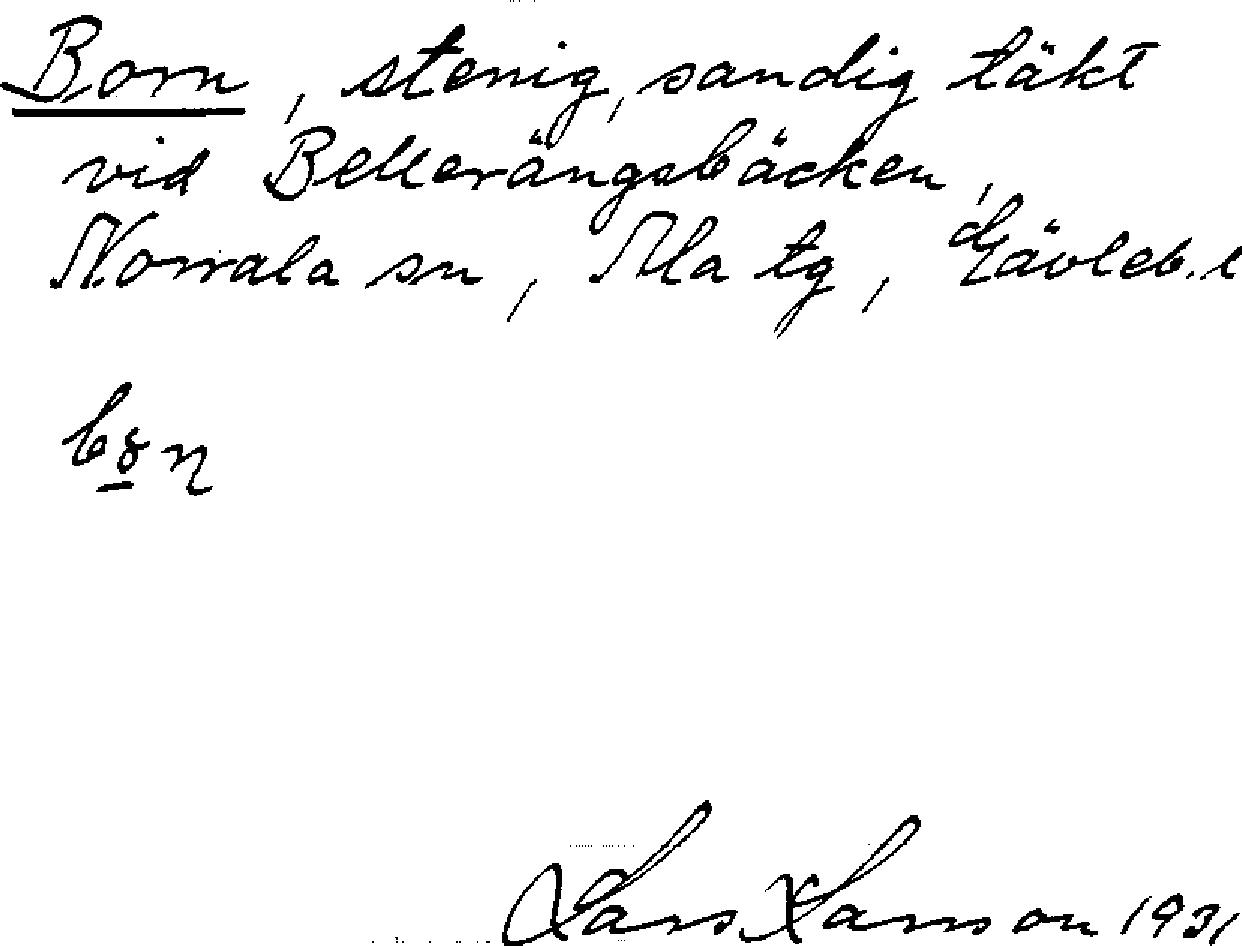 Born, stenig, sandig täkt
vid Bellerängsbäcken,
Norrala sn, Ala tg, Gävleb. l
Lars Larsson 1931